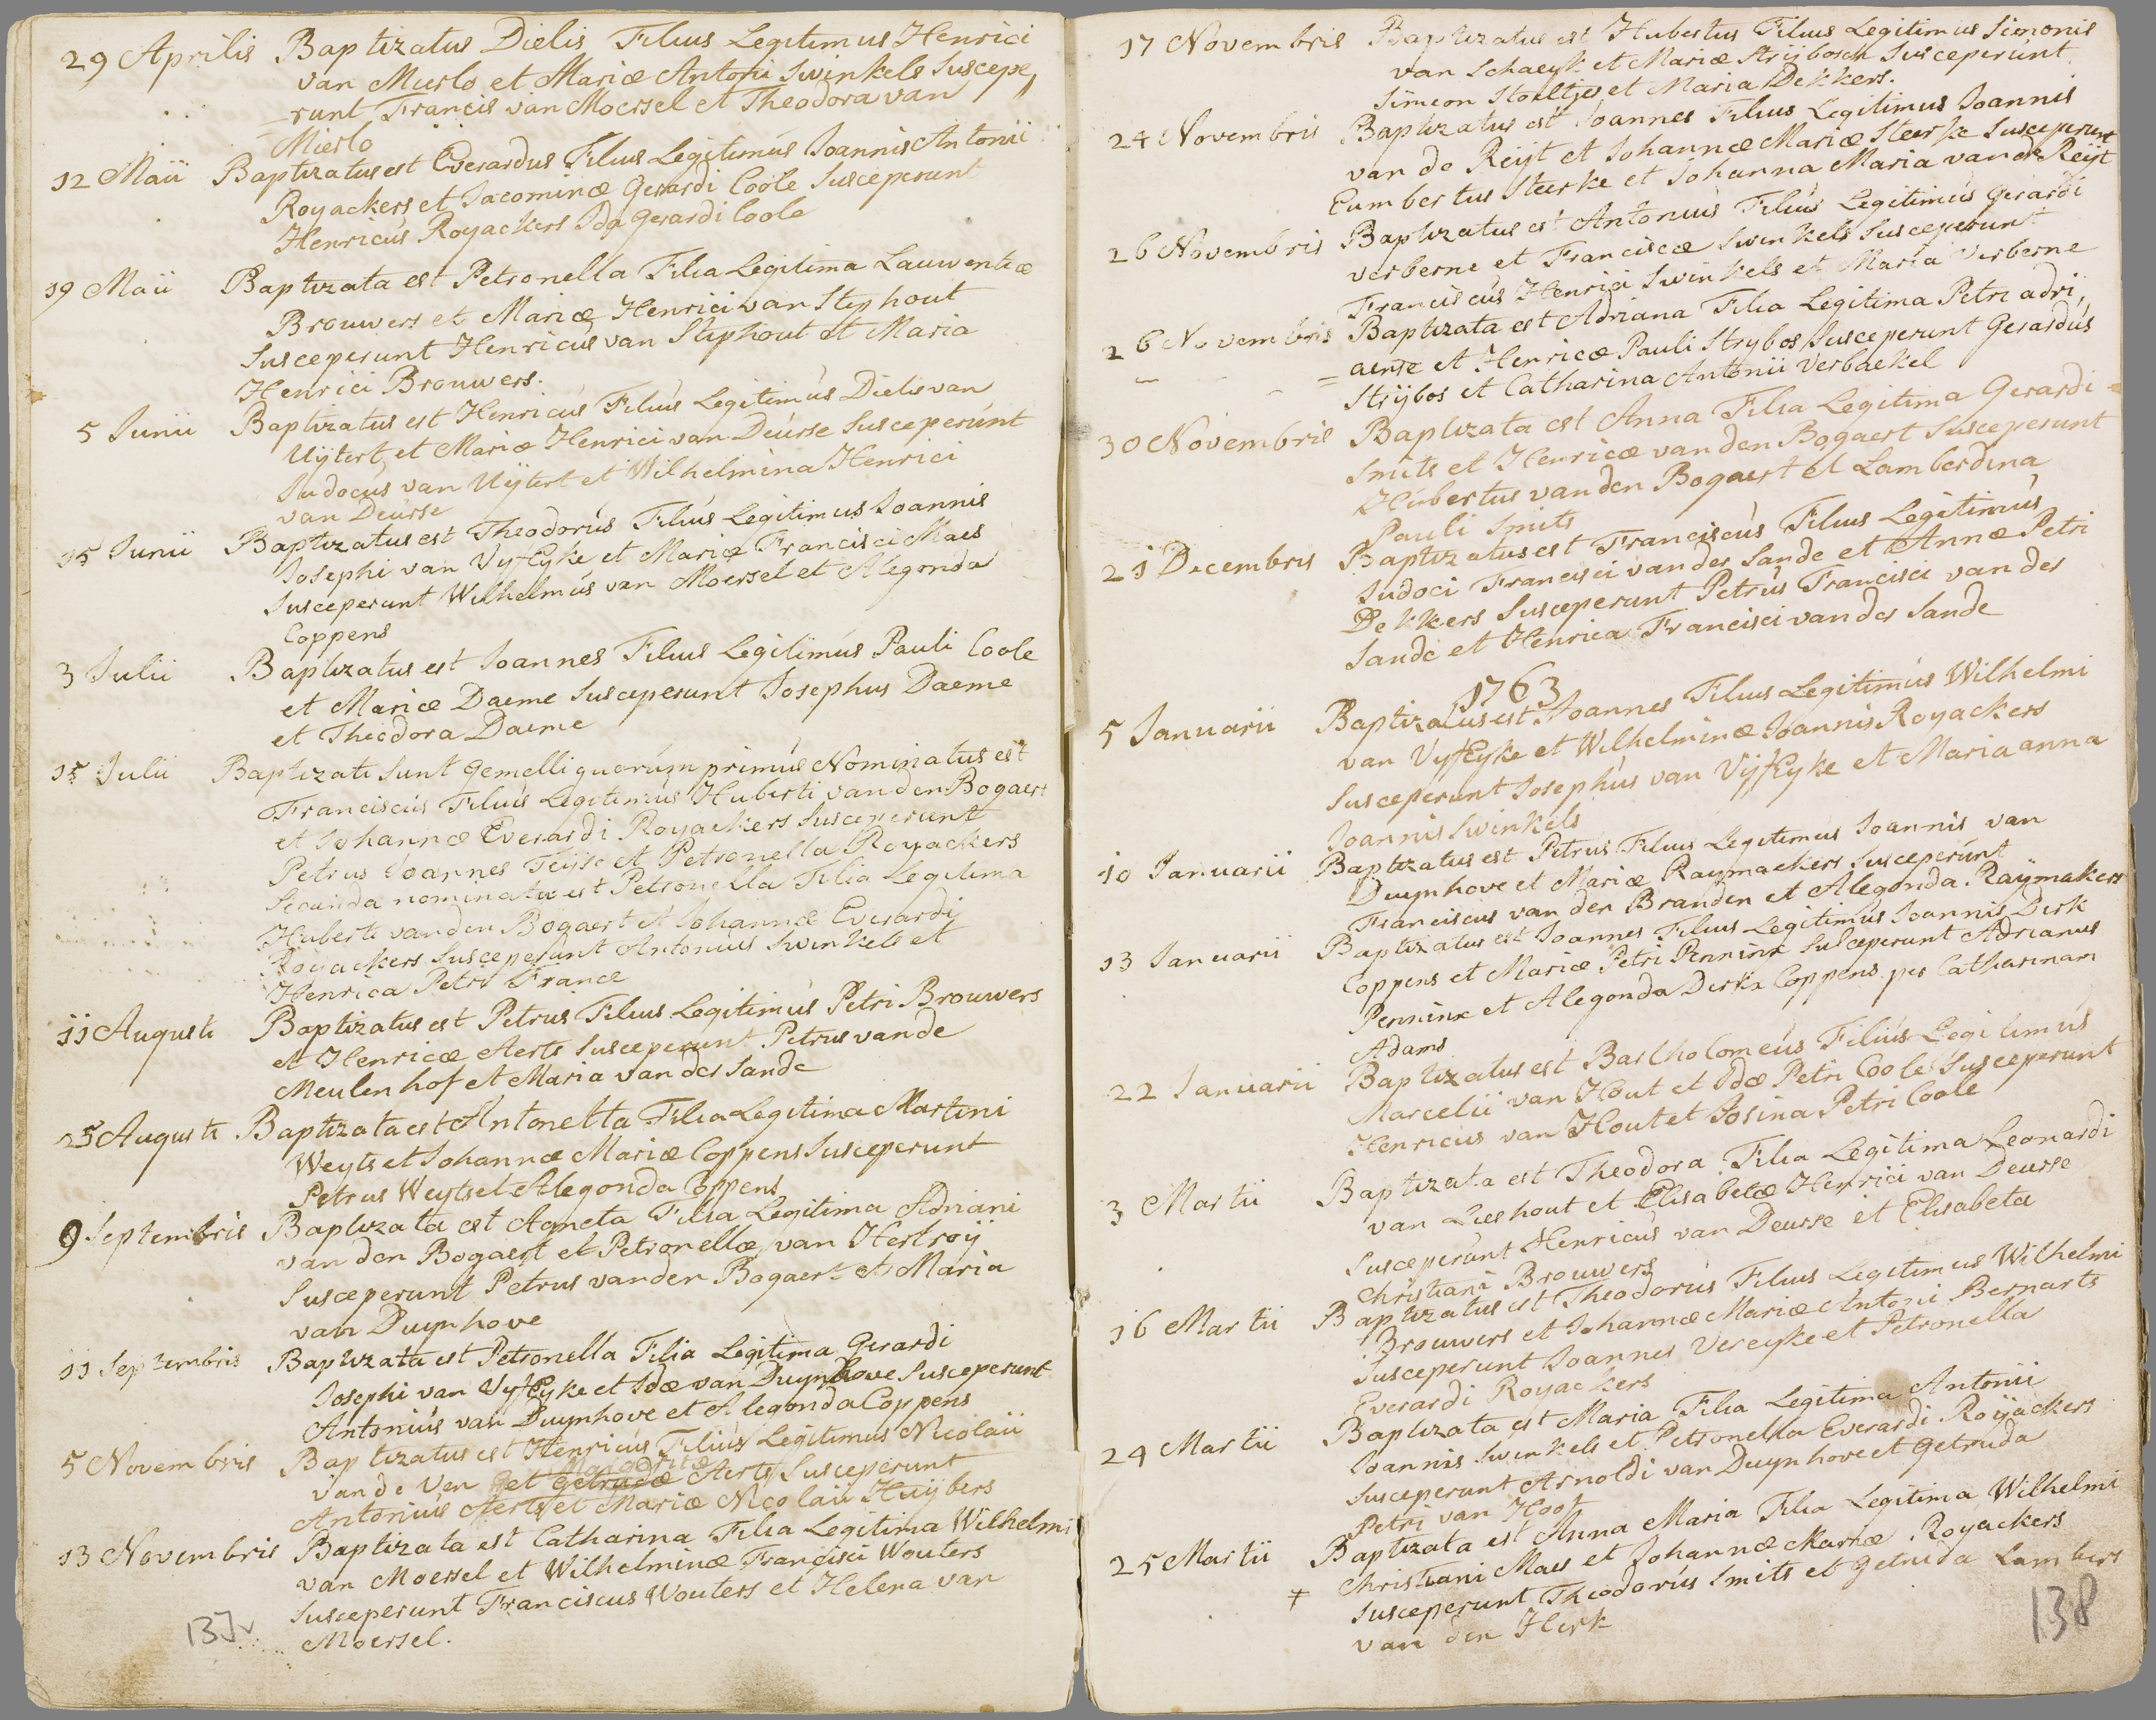 29 Aprilis Baptizatus Dielis Filius Legitimus Henrici
van Mierlo et Mariæ Antoni Swinkels Suscepe,
runt Francis van Moersel et Theodora van
Mierlo
12 Maii Baptizatus est Everardus Filius Legitimus Joannis Antonii
Royackers et Jacominæ Gerardi Coole Susceperunt
Henricus Royackers Ida Gerardi Coole
19 Maii Baptizata est Petronella Filia Legitima Lauwentiæ
Brouwers et Mariæ Henrici van Stiphout
Susceperunt Henricus van Stiphout et Maria
Henrici Brouwers.
5 Junii Baptizatus est Henricus Filius Legitimus Dielis van
Uijtert et Mariæ Henrici van Deurse Susceperunt
Judocus van Uijtert et Wilhelmina Henrici
van Deurse
15 Junii Baptizatus est Theodorus Filius Legitimus Joannis
Josephi van VijfEyke et Mariæ Francisci Maes
Susceperunt Wilhelmus van Moersel et Alegonda
Coppens
3 Julii Baptizatus est Joannes Filius Legitimus Pauli Coole
et Mariæ Daeme Susceperunt Josephus Daeme
et Theodora Daeme
15 Julii Baptizati Sunt Gemelli quorum primus Nominatus est
Franciscus Filius Legitimus Huberti van den Bogaert
et Johannæ Everardi Royackers Susceperunt
Petrus Joannes Teijse et Petronella Royackers
Secunda nominata est Petronella Filia Legitima
Huberti van den Bogaert et Johannæ Everardi
Royackers Susceperunt Antonius Swinkels et
Henrica Petri France
11 Augusti Baptizatus est Petrus Filius Legitimus Petri Brouwers
et Henricæ Aerts Susceperunt Petrus van de
Meulenhof et Maria van der Sande
25 Augusti Baptizata est Antonetta Filia Legitima Martini
Weyts et Johannæ Mariæ Coppens Susceperunt
Petrus Weyts et Alegonda Coppens
9 Septembris Baptizata est Agneta Filia Legitima Adriani
van den Bogaert et Petronellæ van Hertroij
Susceperunt Petrus van den Bogaert et Maria
van Duynhove
11 Septembris Baptizata est Petronella Filia Legitima Gerardi
Josephi van VijfEyke et Idæ van Duynhove Susceperunt
Antonius van Duynhove et Alegonda Coppens
5 Novembris Baptizatus est Henricus Filius Legitimus Nicolaii
Margaritæ
van de Ven et Getrudæ Aerts Susceperunt
Antonius Aerts et Mariæ Nicolaii Huijbers
13 Novembris Baptizata est Catharina Filia Legitima Wilhelmi
van Moersel et Wilhelminæ Francisci Wouters
Susceperunt Franciscus Wouters et Helena van
Moersel.
137v
17 Novembris Baptizatus est Hubertus Filius Legitimus Simonis
van Schaeyk et Mariæ Strijbosch Susceperunt
Simeon Stoeltjes et Maria Dekkers.
24 Novembris Baptizatus est Joannes Filius Legitimus Joannis
van de Reijt et Johannæ Mariæ Steerke Susceperunt
Eumbertus Steerke et Johanna Maria van de Reijt
26 Novembris Baptizatus est Antonius Filius Legitimus Gerardi
verberne et Franciscæ Swinkels Susceperunt
Franciscus Henrici Swinkels et Maria Verberne
26 Novembris Baptizata est Adriana Filia Legitima Petri adri,
aense et Henricæ Pauli Strybos Susceperunt Gerardus
Strijbos et Catharina Antonii Verbaekel
30 Novembris Baptizata est Anna Filia Legitima Gerardi
Smits et Henricæ van den Bogaert Susceperunt
Hubertus van den Bogaert et Lamberdina
Pauli Smits
21 Decembris Baptizatus est Franciscus Filius Legitimus
Judoci Francisci van der Sande et Annæ Petri
Dekkers Susceperunt Petrus Francisci van der
Sande et Henrica Francisci van der Sande
1763
5 Januarii Baptizatus est Joannes Filius Legitimus Wilhelmi
van VijfEyke et Wilhelminæ Joannis Royackers
Susceperunt Josephus van VijfEyke et Maria anna
Joannis Swinkels
10 Januarii Baptizatus est Petrus Filius Legitimus Joannis van
Duynhove et Mariæ Raymackers Susceperunt
Franciscus van den Branden et Alegonda Raijmakers
13 Januarii Baptizatus est Joannes Filius Legitimus Joannis Dirk
Coppens et Mariæ Petri Penninx Susceperunt Adrianus
Penninx et Alegonda Dirkx Coppens per Catharinam
Adams
22 Januarii Baptizatus est Bartholomeus Filius Legitimus
Marcelii van Hout et Idæ Petri Coole Susceperunt
Henricus van Hout et Josina Petri Coole
3 Martii Baptizata est Theodora Filia Legitima Leonardi
van Lieshout et Elisabetæ Henrici van Deurse
Susceperunt Henricus van Deurse et Elisabeta
Christiani Brouwers
16 Martii Baptizatus est Theodorus Filius Legitimus Wilhelmi
Brouwers et Johannæ Mariæ Antoni Bernarts
Susceperunt Joannes Vereyke et Petronella
Everardi Royackers
24 Martii Baptizata est Maria Filia Legitima Antonii
Joannis Swinkels et Petronella Everardi Roijackers
Susceperunt Arnoldi van Duynhove et Getruda
Petri van Hoof
25 Martii Baptizata est Anna Maria Filia Legitima Wilhelmi
Christiani Maes et Johannæ Mariæ Royackers
Susceperunt Theodorus Smits et Getruda Lambers
van den Herk
138